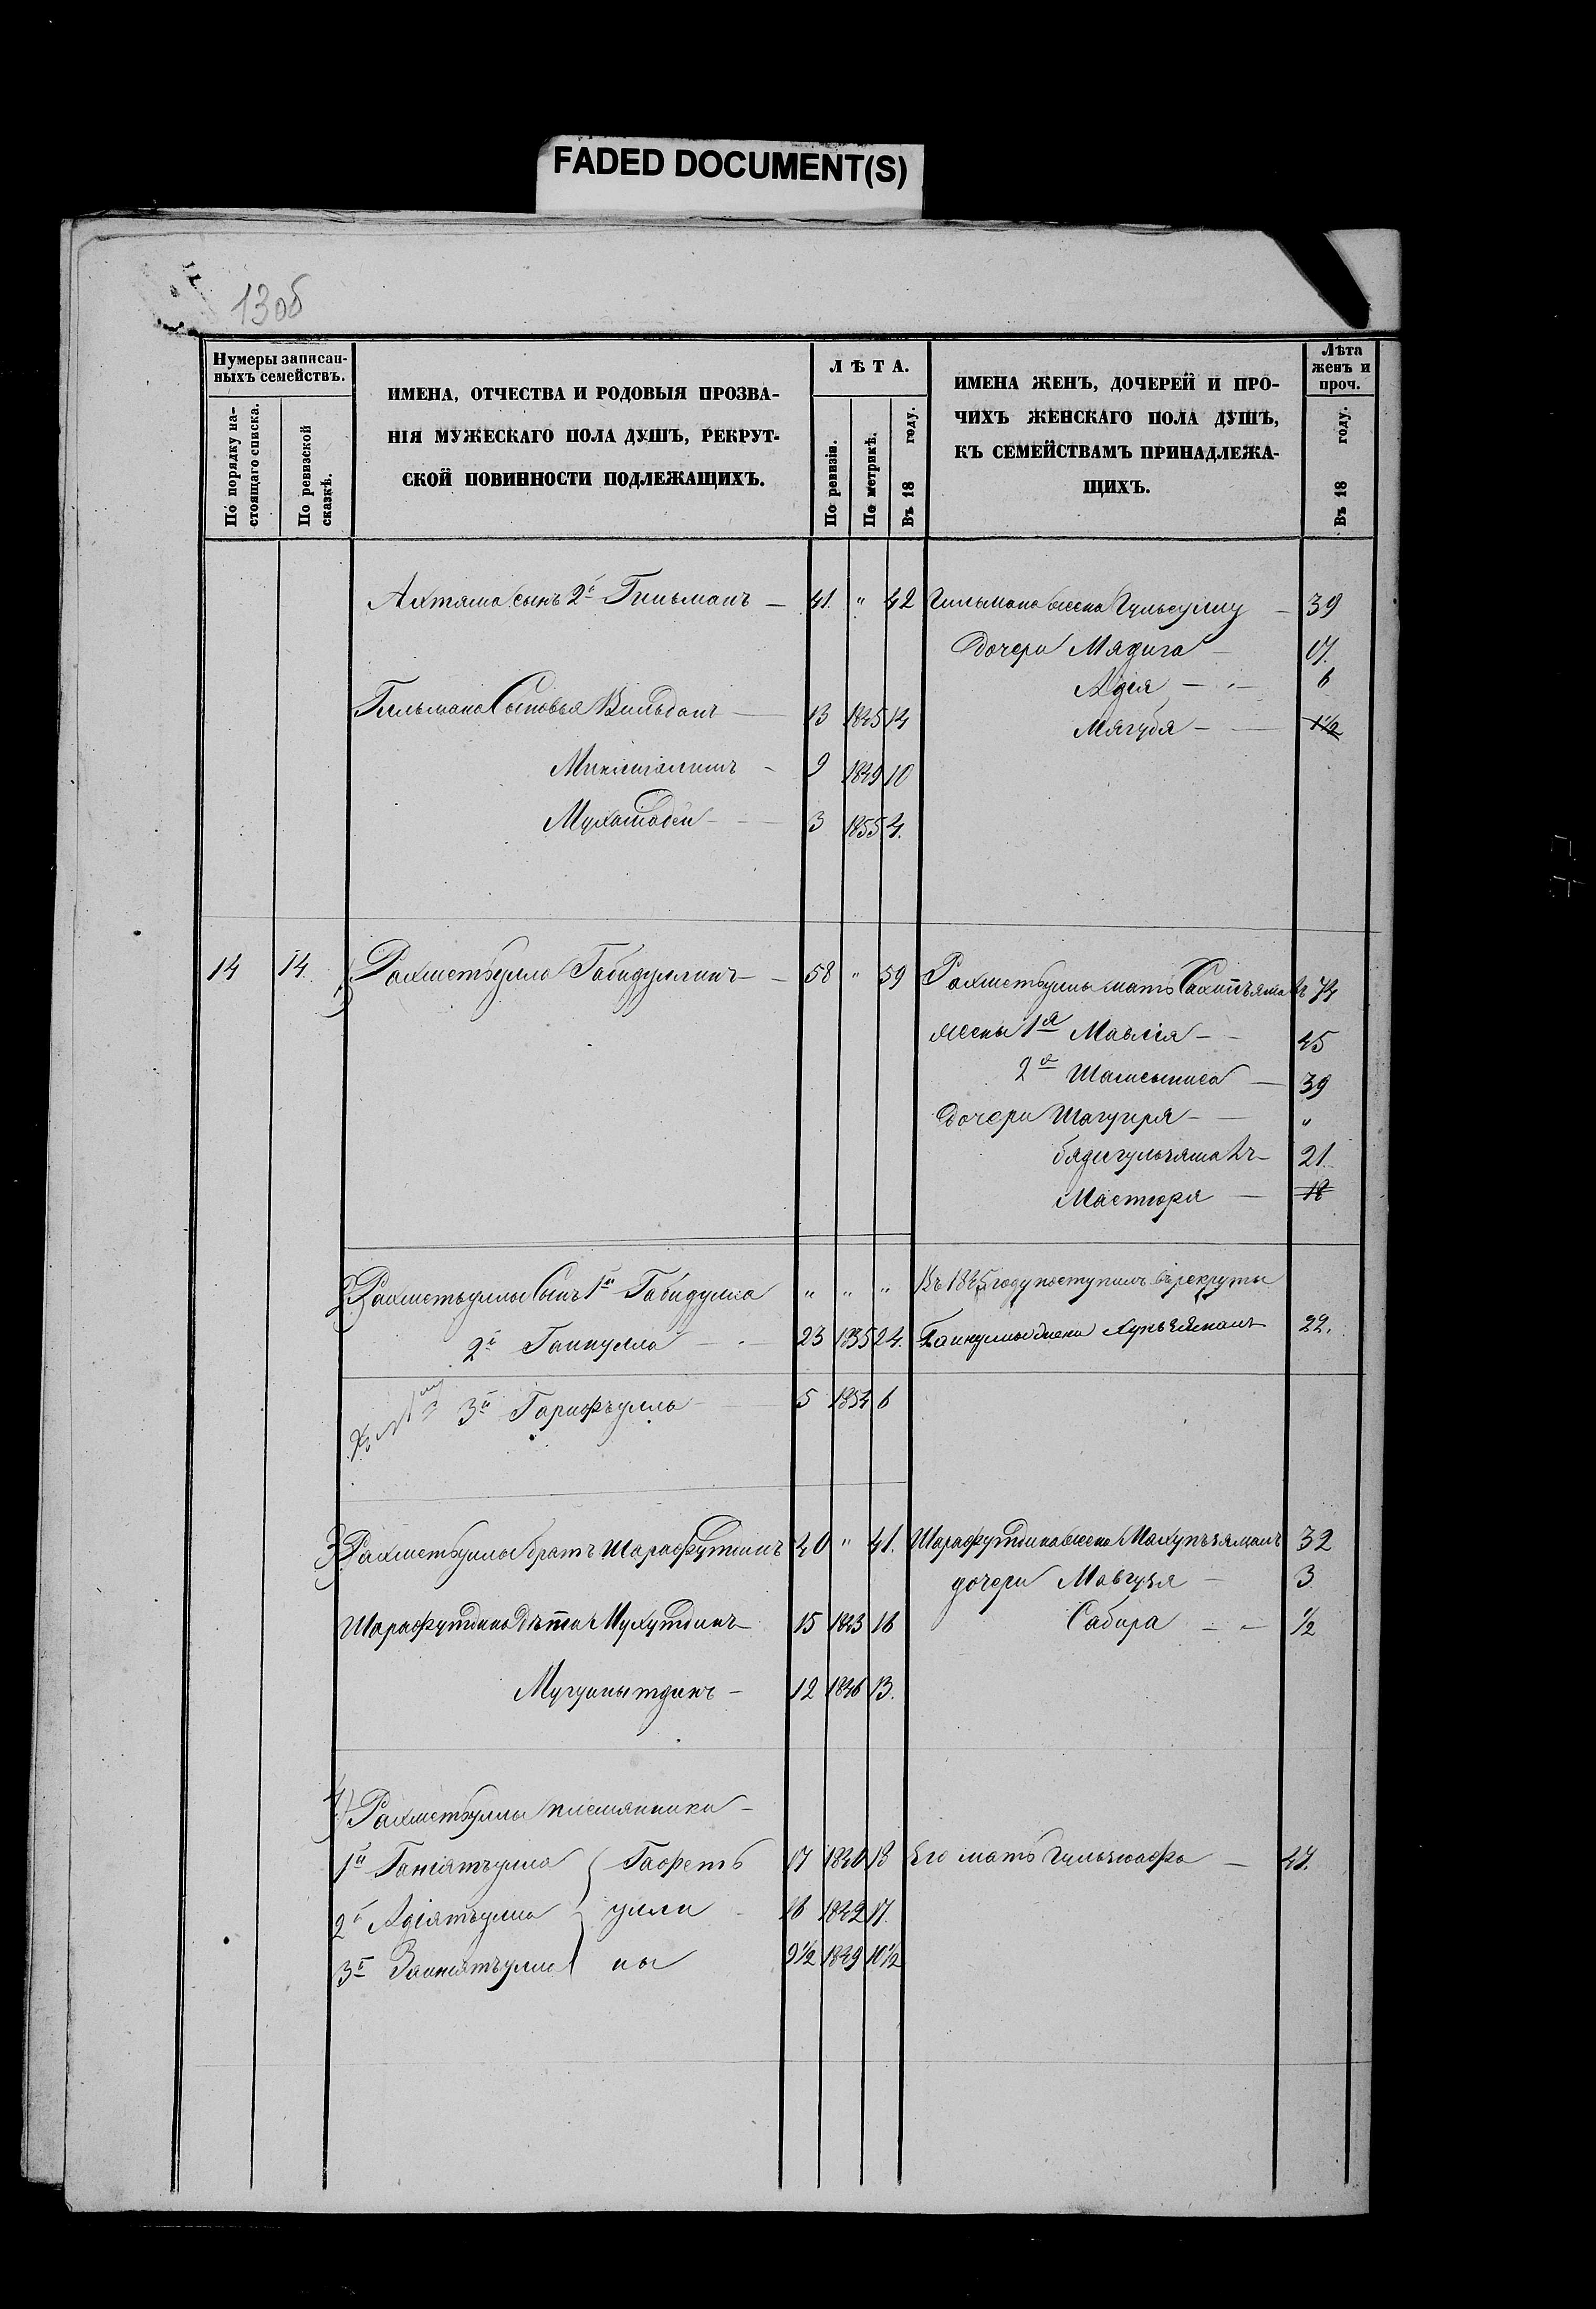 FADED DOCUMENT(S)
13об
Нумеры записан-
ныхъ семействъ.
По порядку на-
стоящаго списка.
По ревизской
сказкѣ.
ИМЕНА, ОТЧЕСТВА И РОДОВЫЯ ПРОЗВА-
НІЯ МУЖЕСКАГО ПОЛА ДУШЪ, РЕКРУТ-
СКОЙ ПОВИННОСТИ ПОДЛЕЖАЩИХЪ.
ЛѢТА.
По ревизіи.
По метрикѣ.
Въ 18 году.
ИМЕНА ЖЕНЪ, ДОЧЕРЕЙ И ПРО-
ЧИХЪ ЖЕНСКАГО ПОЛА ДУШЪ,
КЪ СЕМЕЙСТВАМЪ ПРИНАДЛЕЖА-
ЩИХЪ.
Лѣта
женъ и
проч.
Въ 18 году.
Ахтяма сынъ 2й Гильманъ — 41. " 42 Гильмана жена Гульсуму — 39
Дочери Мядига — 17.
Адія — 6
Гильмана Сыновья Вильданъ — 13 1845 14
Мягубя — 1½
Минлигалимъ — 9 1849 10
Мухамадѣи — 3 1855 4.
14 14. 1) Рахметъулла Габидуллинъ — 58 " 59 Рахметъуллы мать 74
жены 1я Мавлія — 45
2я Шамсыниса — 39
дочери Шагуиря — "
бядигульямалъ — 21.
Мастюря — 18
2) Рахметъуллы Сынъ 1й Габидулла " " " Въ 1845 году поступилъ въ рекруты
2й Гайнулла — 23 1835 24. Гайнуллы жена Хупъямалъ 22.
3й Гарифъулла — 5 1854 6
3) Рахметъуллы братъ Шарафутдинъ 40 " 41. Шарафутдина жена 32
дочери Мавгузя — 3
Шарафутдина дѣти Мухутдинъ — 15 1843 16
Сабира — ½
12 1846 13.
4) Рахметъуллы племянники —
1й Ганіятъулла Гафетъ 17 1840 18 Его мать 47.
2й Адіятъулла улли 16 1842 17.
3й Зайнятъулла ны 9½ 1849 10½